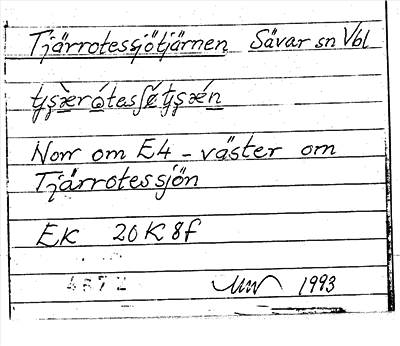 Tjärrotessjötjärnen Sävar sn Vbl
Norr om E4 - väster om
Tjärrotessjön
EK 20K 8f
1993